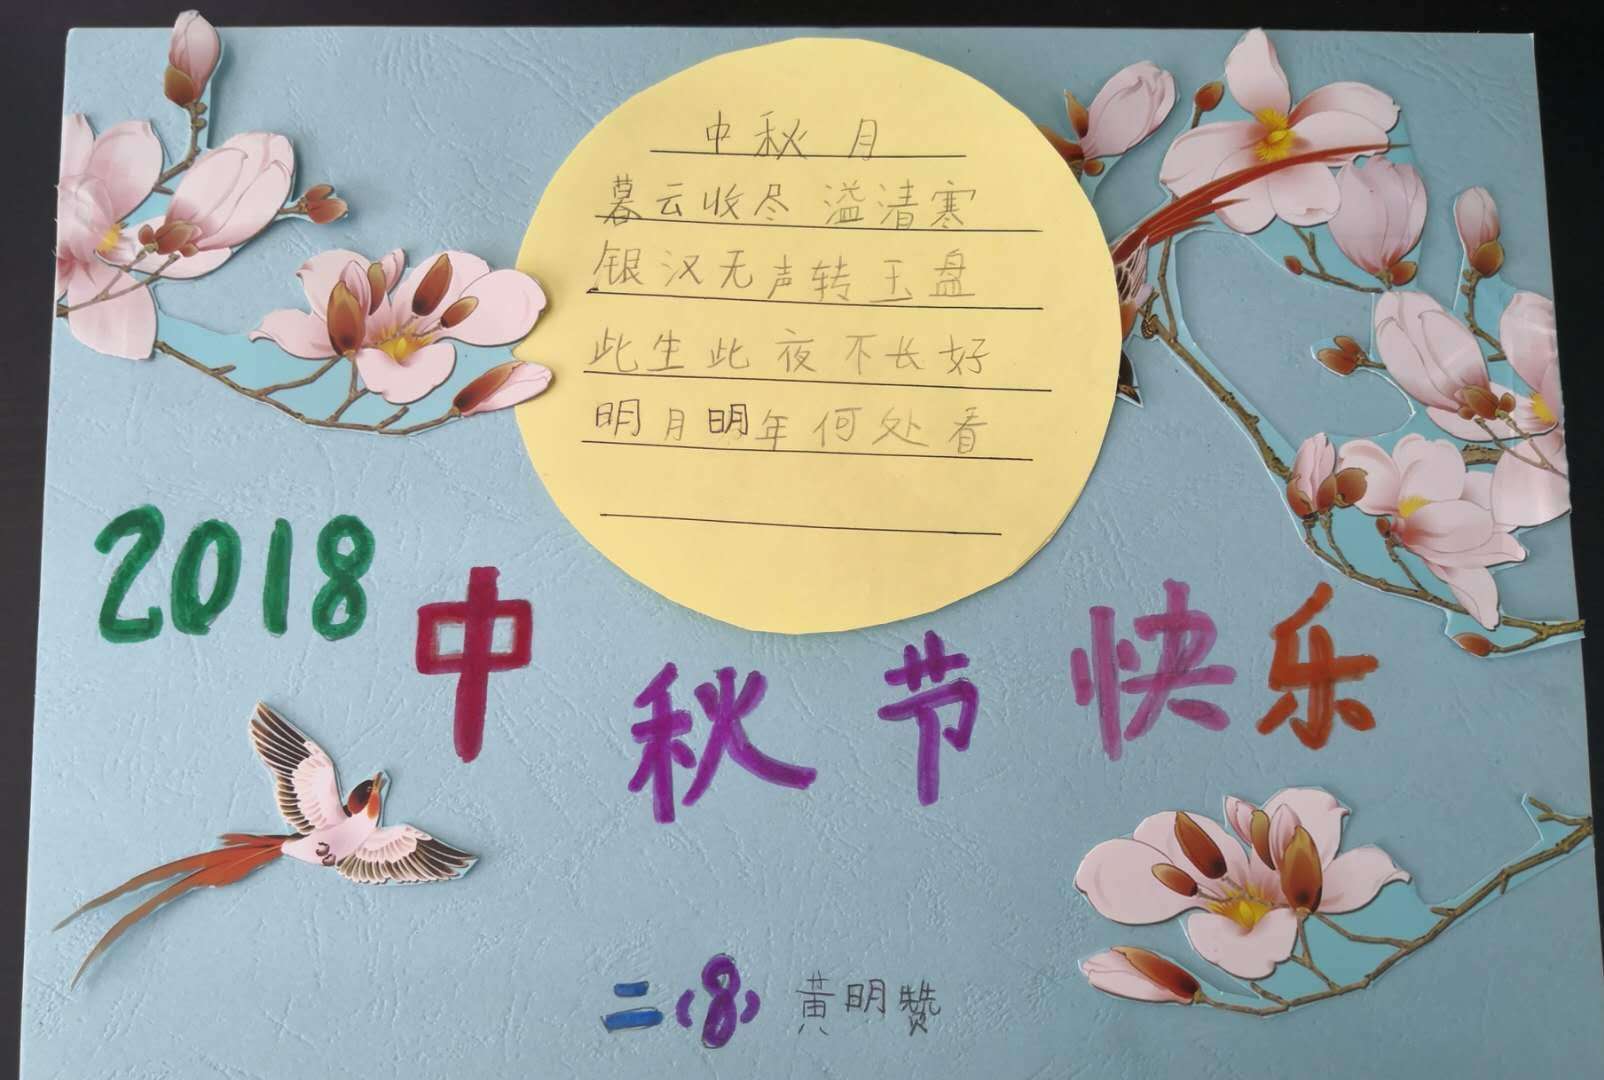 中秋月
暮云收尽溢清寒
银汉无声转玉盘
此生此夜不长好
明月明年何处看
2018中秋节快乐
二(8) 黄明赞